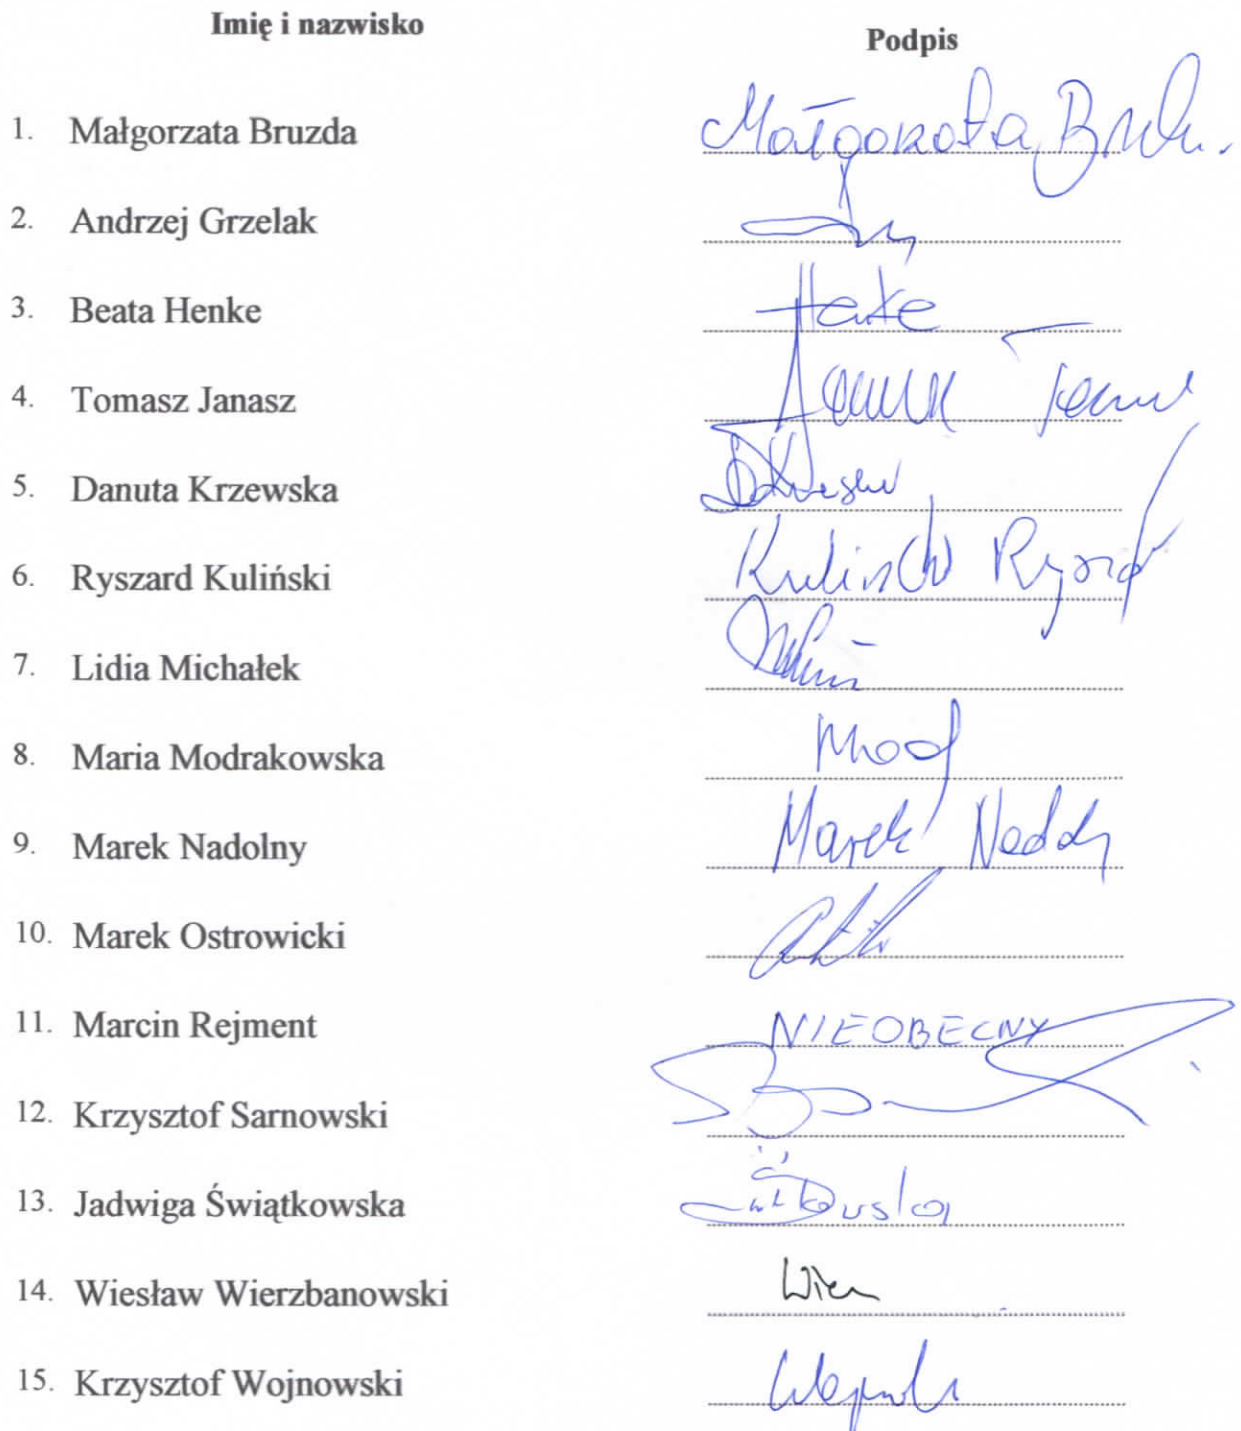 Imię i nazwisko Podpis
1. Małgorzata Bruzda Małgorzata
2. Andrzej Grzelak
3. Beata Henke Henke
4. Tomasz Janasz
5. Danuta Krzewska
6. Ryszard Kuliński Kuliński
7. Lidia Michałek
8. Maria Modrakowska Mod
9. Marek Nadolny Marek
10. Marek Ostrowicki
11. Marcin Rejment NIEOBECNY
12. Krzysztof Sarnowski
13. Jadwiga Świątkowska
14. Wiesław Wierzbanowski
15. Krzysztof Wojnowski